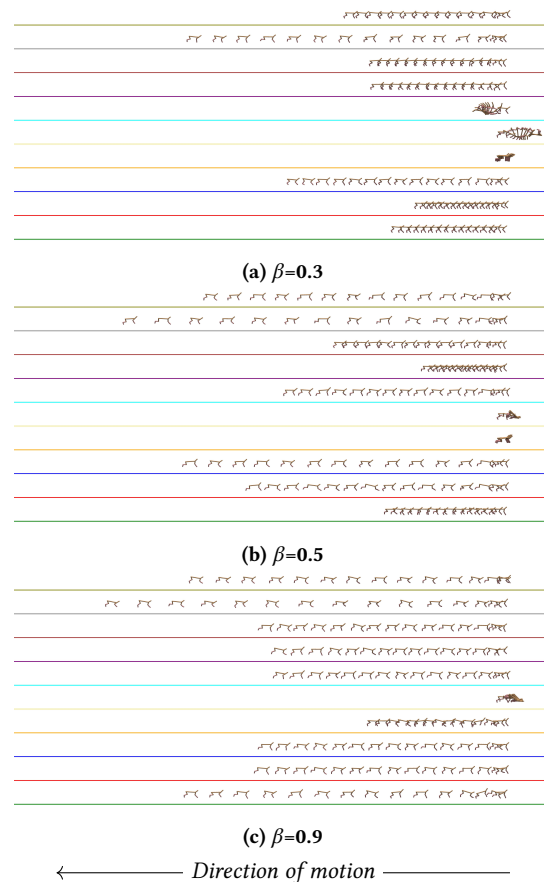 (a) β=0.3
(b) β=0.5
(c) β=0.9
Direction of motion